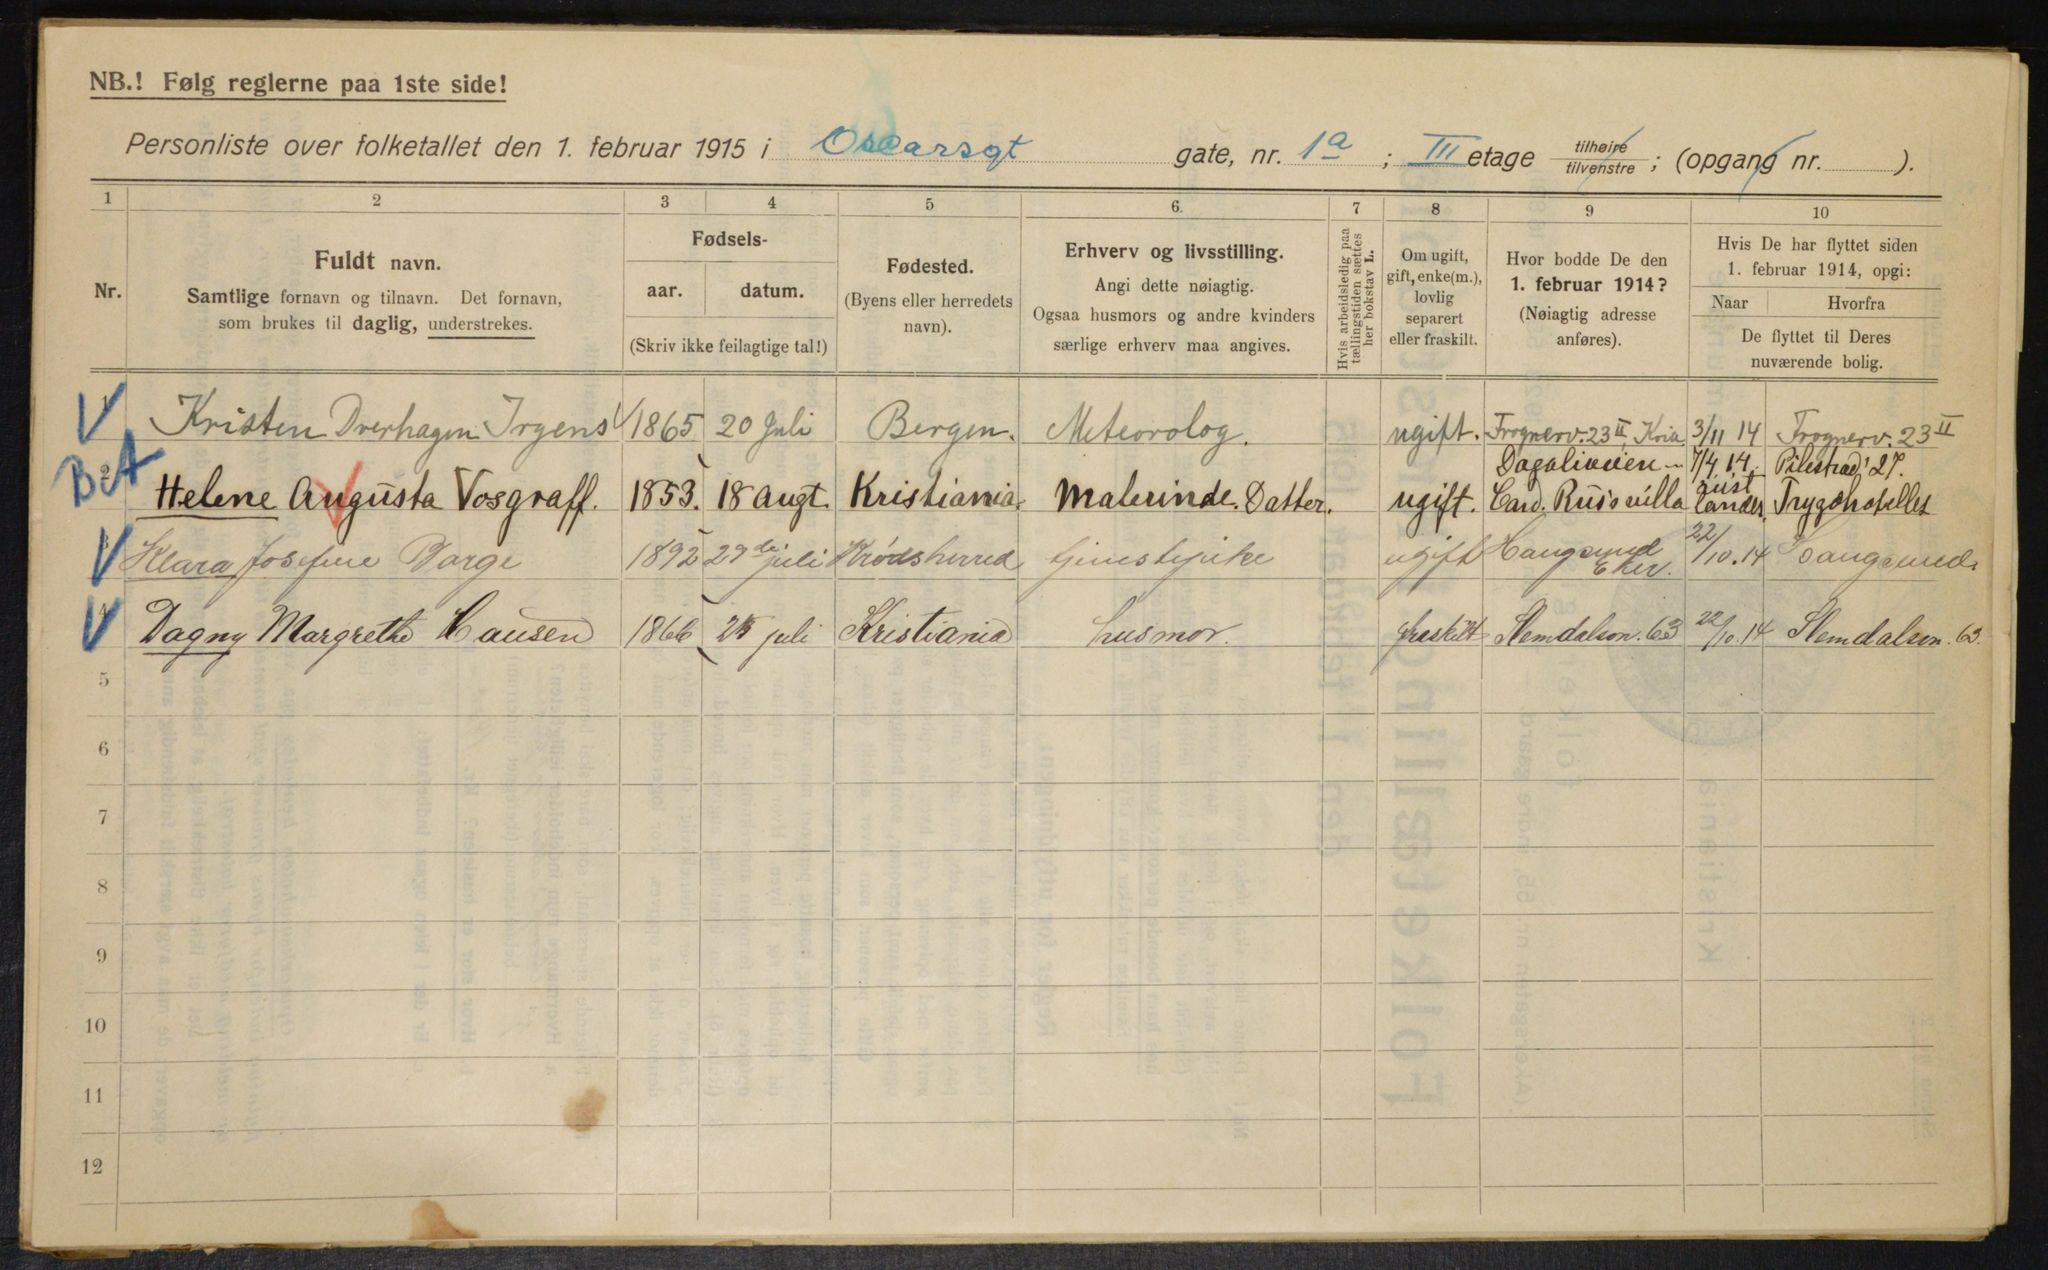 NB.! Følg reglerne paa 1ste side!
Personliste over folketallet den 1. februar 1915 i Oscarsgt gate, nr. 1a ; III etage tilhøire tilvenstre ; (opgang nr. ).
1 2 3 4 5 6. 7 8 9 10
Nr.
Fuldt navn.
Samtlige fornavn og tilnavn. Det fornavn,
som brukes til daglig, understrekes.
Fødsels-
aar. datum.
(Skriv ikke feilagtige tal!)
Fødested.
(Byens eller herredets
navn).
Erhverv og livsstilling.
Angi dette nøiagtig.
Ogsaa husmors og andre kvinders
særlige erhverv maa angives.
Hvis arbeidsledig paa
tællingstiden sættes
her bokstav L.
Om ugift,
gift, enke(m.),
lovlig
separert
eller fraskilt.
Hvor bodde De den
1. februar 1914?
(Nøiagtig adresse
anføres).
Hvis De har flyttet siden
1. februar 1914, opgi:
Naar Hvorfra
De flyttet til Deres
nuværende bolig.
1 Kristen Dverhagen Irgens 1865 20 Juli Bergen. Meteorolog. ugift. Frognerv. 23 II, Kria 3/11 14 Frognerv. 23 II
B.A 2 Helene Augusta Vosgraff. 1853. 18 Augt. Kristiania. Malerinde. Datter. ugift. Card. Russvilla 7/4 14. Pilestræd 27.
Trygshotellet
3 Klara Josefine Borge 1892 29de juli Krødsherred tjenestepike ugift Haugsund Eker. 22/10.14 Haugsund
4 Dagny Margrethe Hausen 1866 juli Kristiania husmor. fraskilt Slemdalsvn. 63 22/10.14 Slemdalsvn. 63
5
6
7
8
9
10
11
12